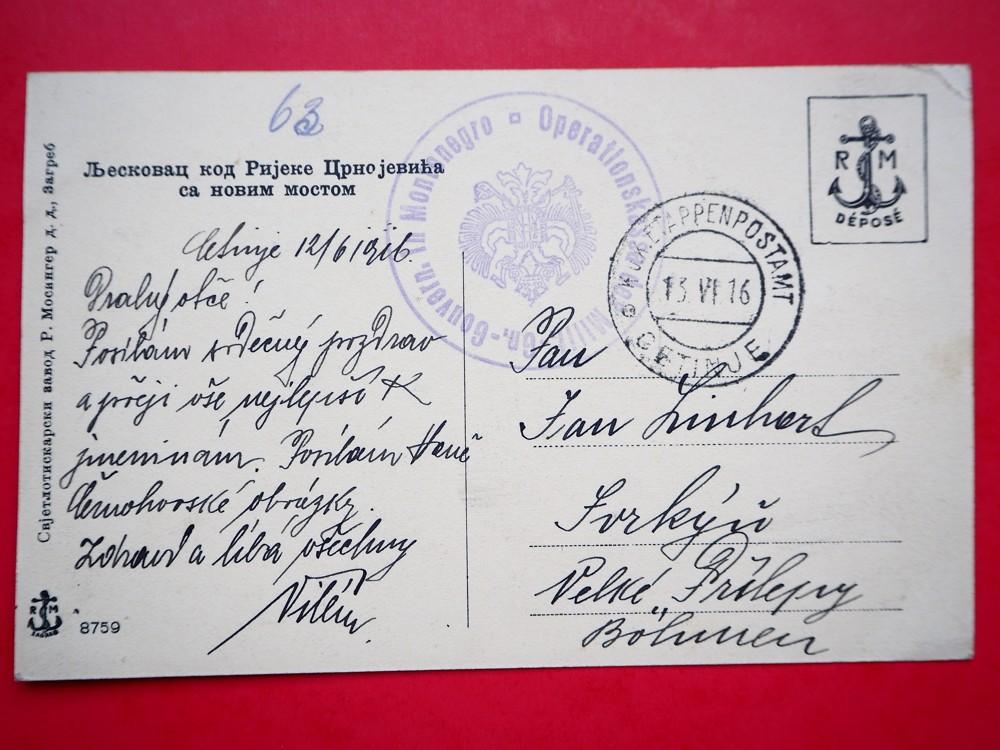 63
Љесковац код Ријеке Црнојевића
са новим мостом
Cetinje 12/6 1916.
Drahý otče!
Posílám srdečný pozdrav
a přeji vše nejlepší k
jmeninám. Posílám Haně
Černohorské obrázky.
Zdraví a líbá všechny
Vilém
Свјетлотискарски завод Р. Мосингер д. д., Загреб
R M
ZAGREB
8759
Militär-Gen.-Gouvern. in Montenegro
Operationska
K.u.K. ETAPPENPOSTAMT
13. VI 16
CETINJE
R M
DÉPOSÉ
Pan
Jan Linhart
Velké Přílepy
Böhmen